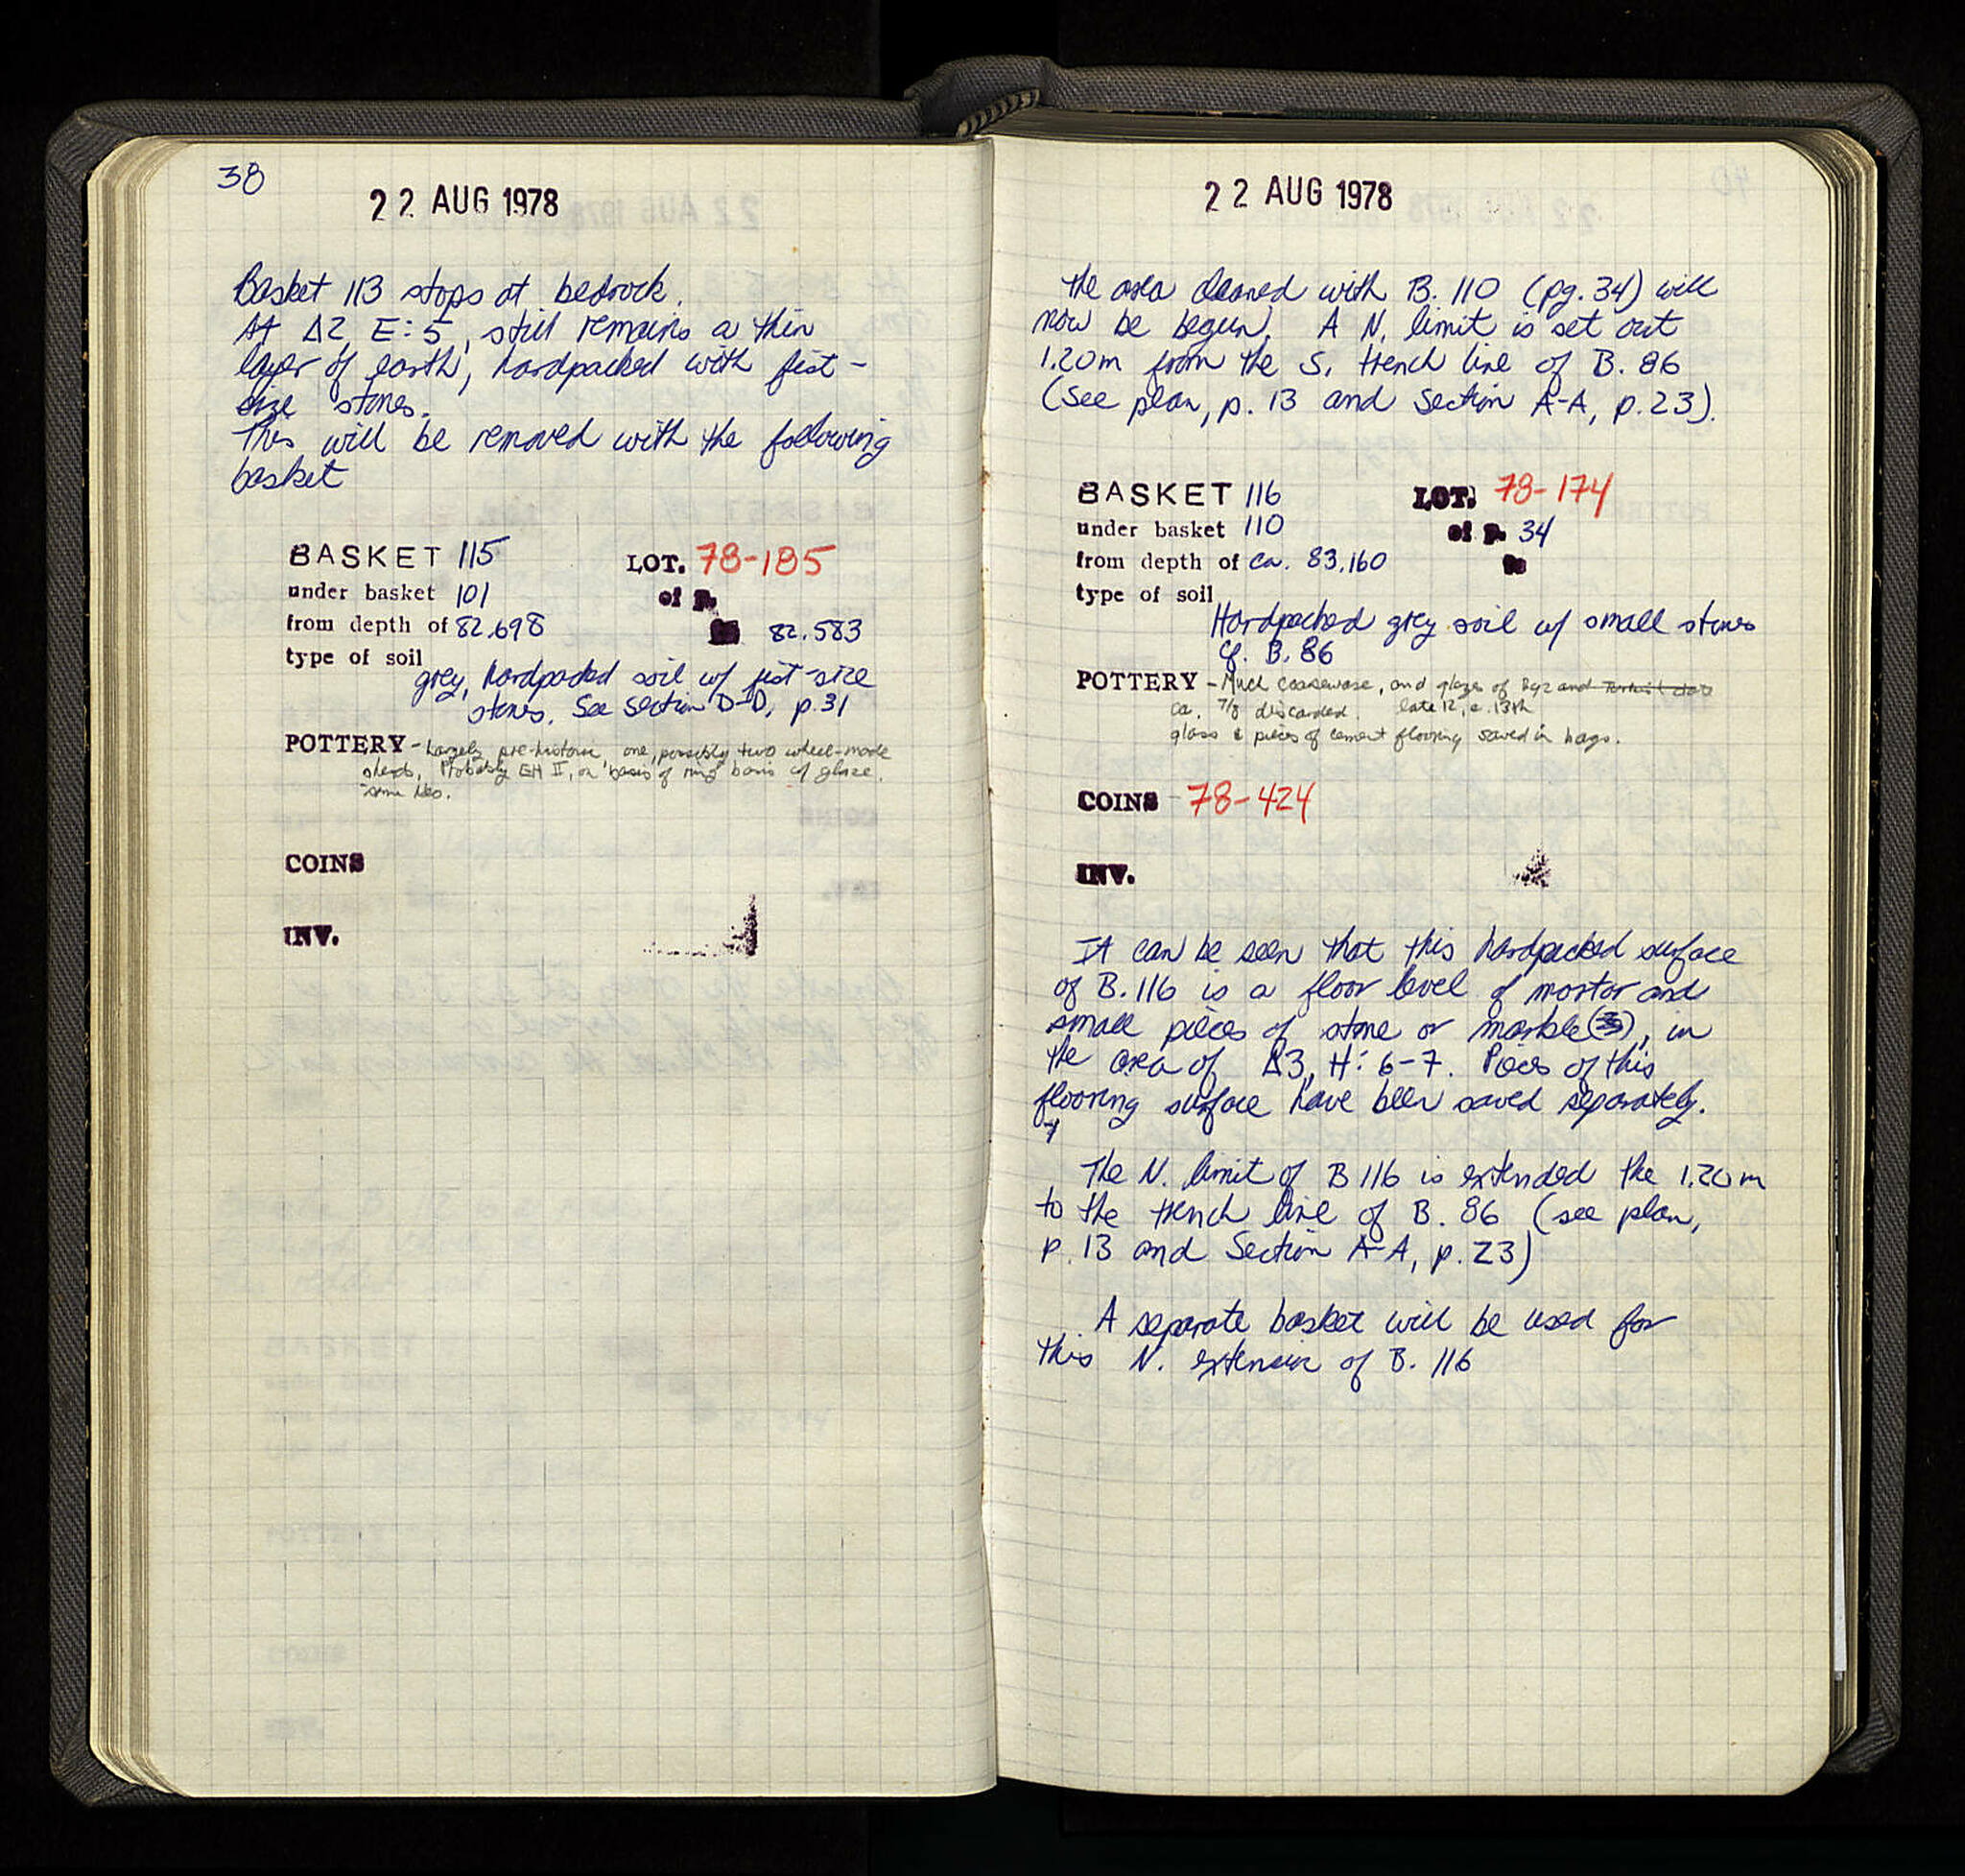 38
22 AUG 1978
Basket 113 stops at bedrock.
At Δ2, E:5, still remains a thin
layer of earth, hardpacked with fist-
size stones.
This will be removed with the following
basket
BASKET 115 LOT. 78-185
under basket 101 of p.
from depth of 82.698 to 82.583
type of soil
grey, hardpacked soil w/ fist-size
stones. See section D-D, p.31
POTTERY - Largely pre-historic, one, possibly two wheel-made
sherds, Probably EH II, on basis of ring basis w/ glaze.
some Neo.
COINS
INV.
22 AUG 1978
The area cleaned with B. 110 (pg. 34) will
now be begun. A N. limit is set out
1.20m from the S. trench line of B. 86
(see plan, p. 13 and Section A-A, p. 23).
BASKET 116 LOT. 78-174
under basket 110 of p. 34
from depth of ca. 83.160 to
type of soil
Hardpacked grey soil w/ small stones
cf. B. 86
POTTERY - Much coarseware, and glazes of Byz and Turkish date
ca. 7/8 discarded. late 12, e. 13th
glass & pieces of cement flooring saved in bags.
COINS - 78-424
INV.
It can be seen that this hardpacked surface
of B. 116 is a floor level of mortar and
small pieces of stone or marble, in
the area of Δ3, H: 6-7. Pieces of this
flooring surface have been saved separately.
The N. limit of B 116 is extended the 1.20m
to the trench line of B. 86 (see plan,
p. 13 and Section A-A, p. 23)
A separate basket will be used for
this N. extension of B. 116